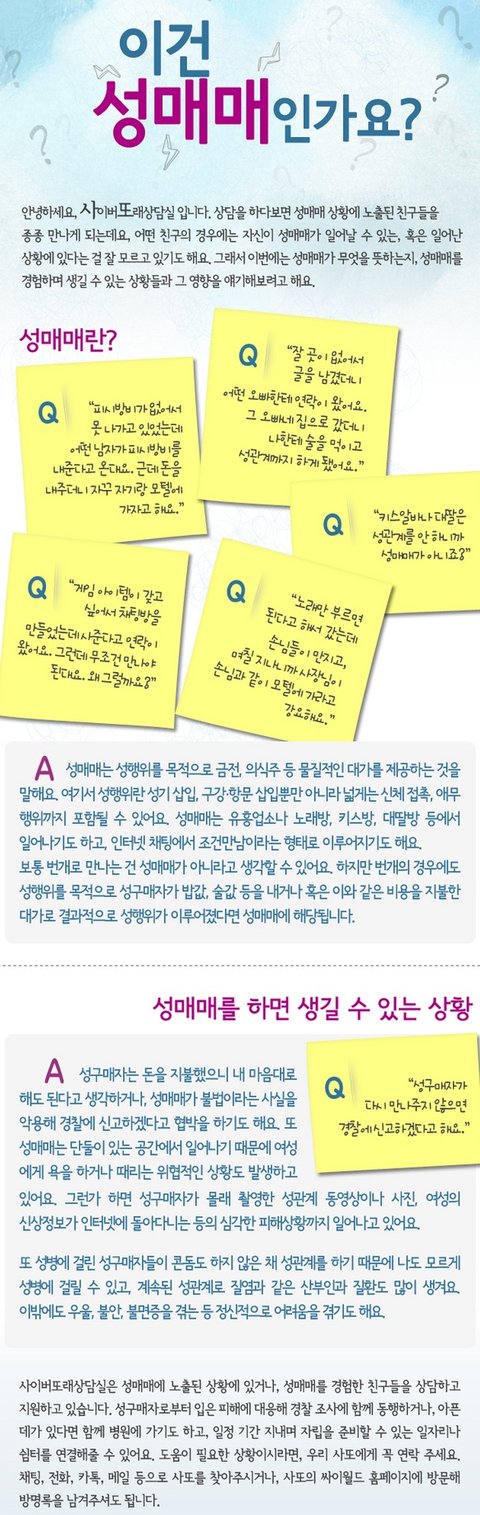 이건
성매매인가요?
안녕하세요, 사이버또래상담실 입니다. 상담을 하다보면 성매매 상황에 노출된 친구들을
종종 만나게 되는데요, 어떤 친구의 경우에는 자신이 성매매가 일어날 수 있는, 혹은 일어난
상황에 있다는 걸 잘 모르고 있기도 해요. 그래서 이번에는 성매매가 무엇을 뜻하는지, 성매매를
경험하며 생길 수 있는 상황들과 그 영향을 얘기해보려고 해요.
성매매란?
Q
"피시방비가 없어서
못 나가고 있었는데
어떤 남자가 피시방비를
내준다고 온대요. 근데 돈을
내주더니 자꾸 자기랑 모텔에
가자고 해요."
Q
"잘 곳이 없어서
글을 남겼더니
어떤 오빠한테 연락이 왔어요.
그 오빠네 집으로 갔더니
나한테 술을 먹이고
성관계까지 하게 됐어요."
Q
"키스알바나 대딸은
성관계를 안 하니까
성매매가 아니죠?"
Q
"게임 아이템이 갖고
싶어서 채팅방을
만들었는데 사준다고 연락이
왔어요. 그런데 무조건 만나야
된대요. 왜 그럴까요?"
Q
"노래만 부르면
된다고 해서 갔는데
손님들이 만지고,
며칠 지나니까 사장님이
손님과 같이 모텔에 가라고
강요해요."
A 성매매는 성행위를 목적으로 금전, 의식주 등 물질적인 대가를 제공하는 것을
말해요. 여기서 성행위란 성기 삽입, 구강·항문 삽입뿐만 아니라 넓게는 신체 접촉, 애무
행위까지 포함될 수 있어요. 성매매는 유흥업소나 노래방, 키스방, 대딸방 등에서
일어나기도 하고, 인터넷 채팅에서 조건만남이라는 형태로 이루어지기도 해요.
보통 번개로 만나는 건 성매매가 아니라고 생각할 수 있어요. 하지만 번개의 경우에도
성행위를 목적으로 성구매자가 밥값, 술값 등을 내거나 혹은 이와 같은 비용을 지불한
대가로 결과적으로 성행위가 이루어졌다면 성매매에 해당됩니다.
성매매를 하면 생길 수 있는 상황
Q
"성구매자가
다시 만나주지 않으면
경찰에 신고하겠다고 해요."
A 성구매자는 돈을 지불했으니 내 마음대로
해도 된다고 생각하거나, 성매매가 불법이라는 사실을
악용해 경찰에 신고하겠다고 협박을 하기도 해요. 또
성매매는 단둘이 있는 공간에서 일어나기 때문에 여성
에게 욕을 하거나 때리는 위협적인 상황도 발생하고
있어요. 그런가 하면 성구매자가 몰래 촬영한 성관계 동영상이나 사진, 여성의
신상정보가 인터넷에 돌아다니는 등의 심각한 피해상황까지 일어나고 있어요.
또 성병에 걸린 성구매자들이 콘돔도 하지 않은 채 성관계를 하기 때문에 나도 모르게
성병에 걸릴 수 있고, 계속된 성관계로 질염과 같은 산부인과 질환도 많이 생겨요.
이밖에도 우울, 불안, 불면증을 겪는 등 정신적으로 어려움을 겪기도 해요.
사이버또래상담실은 성매매에 노출된 상황에 있거나, 성매매를 경험한 친구들을 상담하고
지원하고 있습니다. 성구매자로부터 입은 피해에 대응해 경찰 조사에 함께 동행하거나, 아픈
데가 있다면 함께 병원에 가기도 하고, 일정 기간 지내며 자립을 준비할 수 있는 일자리나
쉼터를 연결해줄 수 있어요. 도움이 필요한 상황이시라면, 우리 사또에게 꼭 연락 주세요.
채팅, 전화, 카톡, 메일 등으로 사또를 찾아주시거나, 사또의 싸이월드 홈페이지에 방문해
방명록을 남겨주셔도 됩니다.